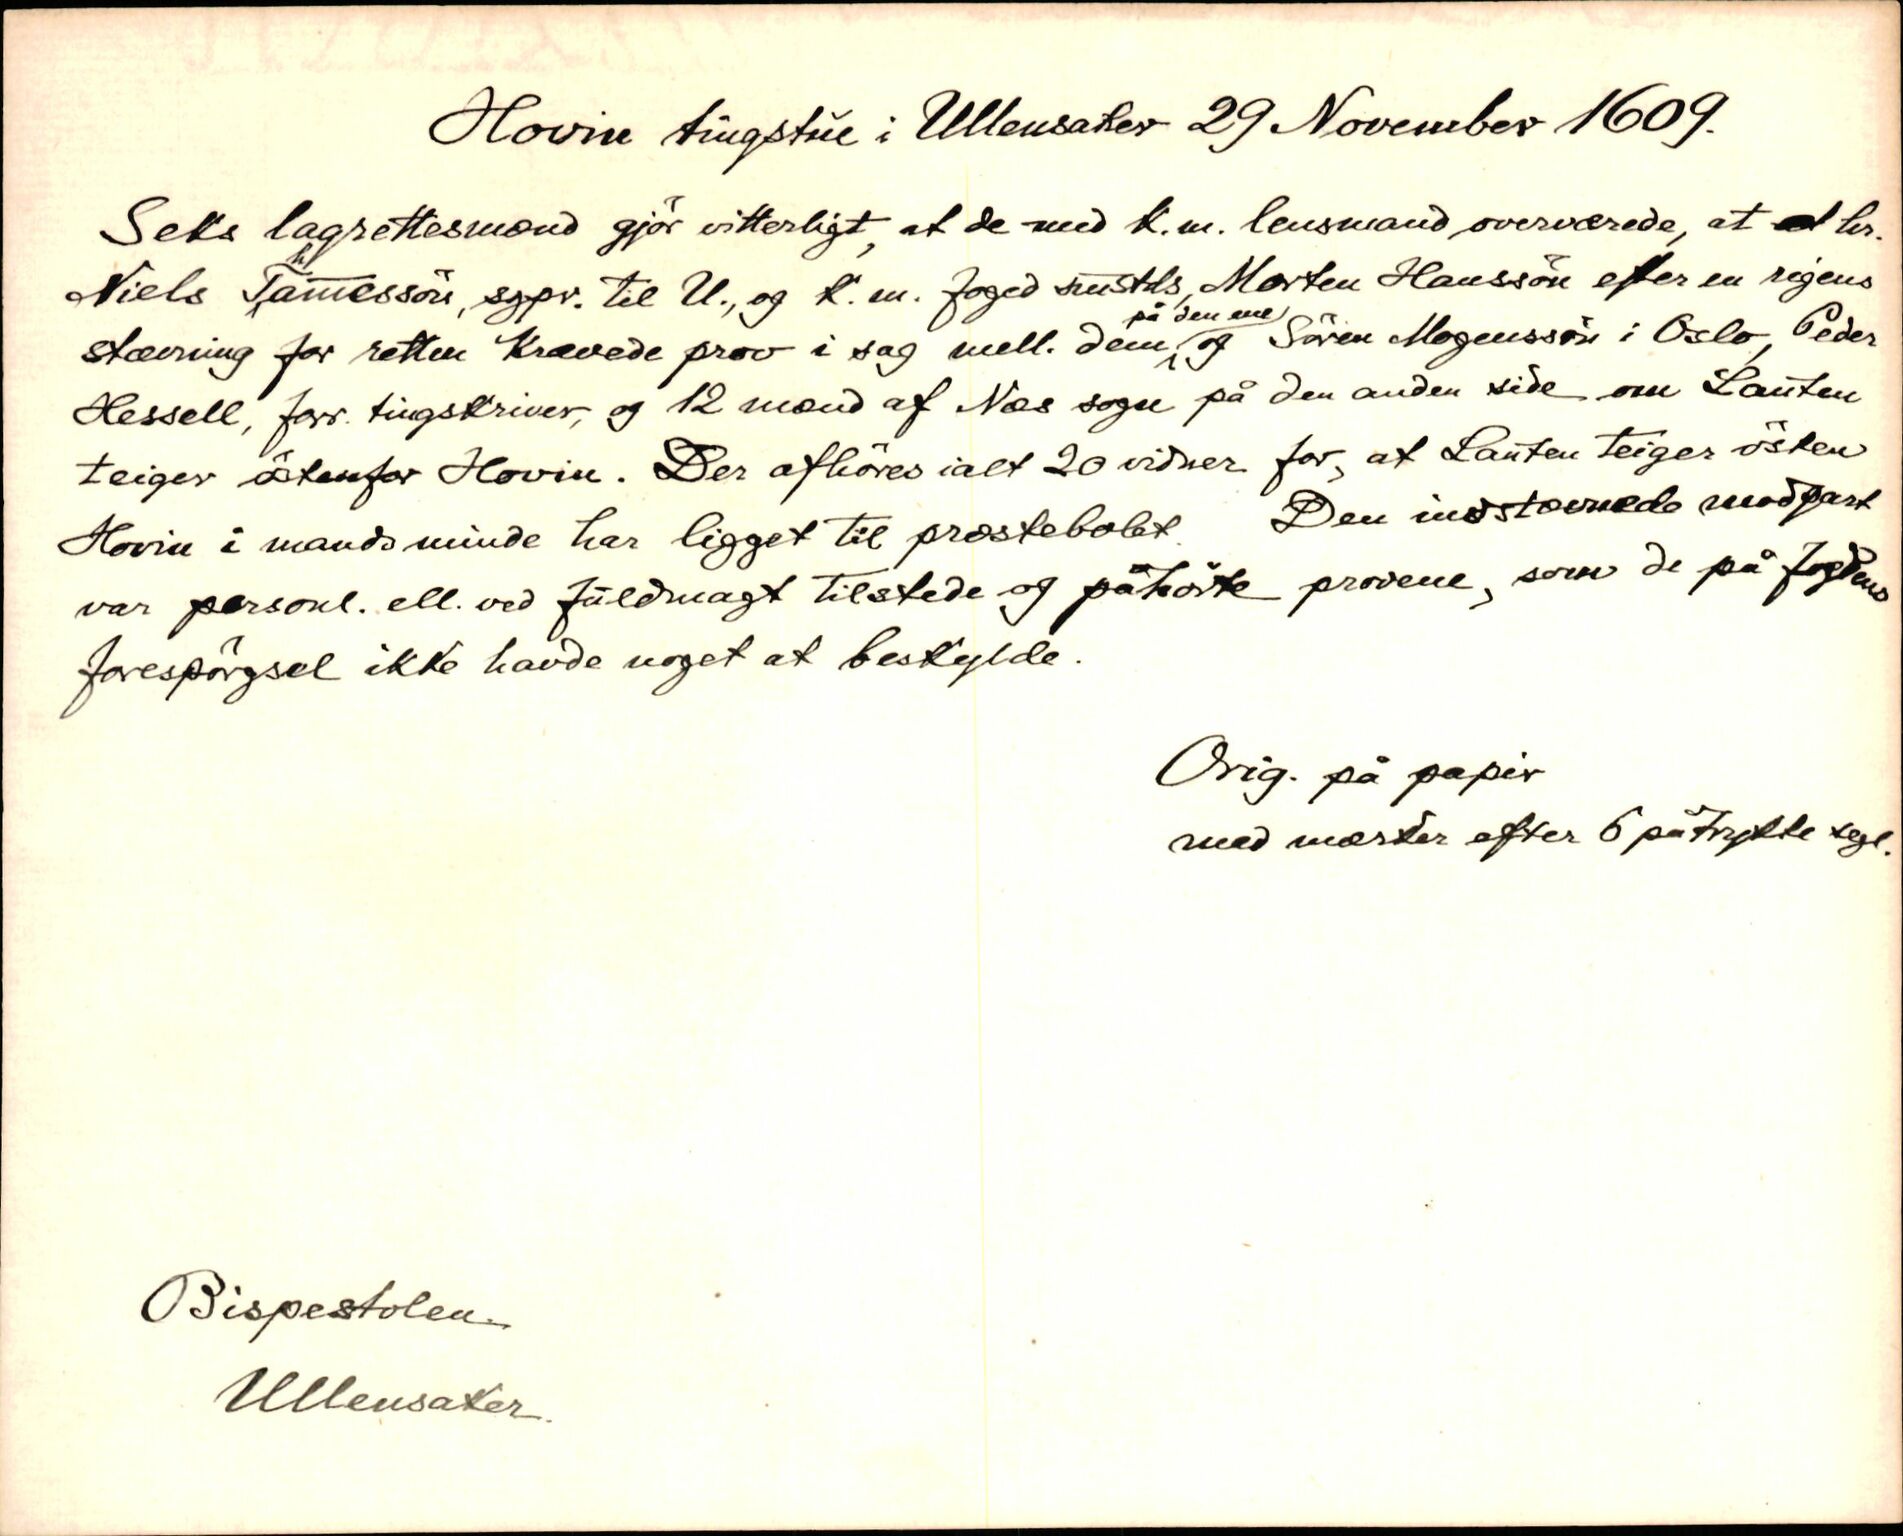 Hovin tingstue i Ullensaker 29 November 1609.
Seks lagrettesmænd gjör vitterligt, at de med k.m. lensmand overværede, at hr.
Niels Thamessön, sgpr. til U., og k.m. foged smstds, Morten Hanssön efter en rigens
stævning for retten krævede prov i sag mell. dem på den ene og Sören Mogenssön i Oslo, Peder
Hessell, forr. tingskriver, og 12 mænd af Næs sogn på den anden side om Lauten
teiger östenfor Hovin. Der afhöres ialt 20 vidner for, at Lauten teiger östen
Hovin i mands minde har ligget til præstebolet. Den indstævnede modpart
var personl. ell. ved fuldmagt tilstede og påhörte provene, som de på fogdens
forespörgsel ikke havde noget at beskylde.
Orig. på papir
med mærker efter 6 påtrykte segl.
Bispestolen.
Ullensaker.